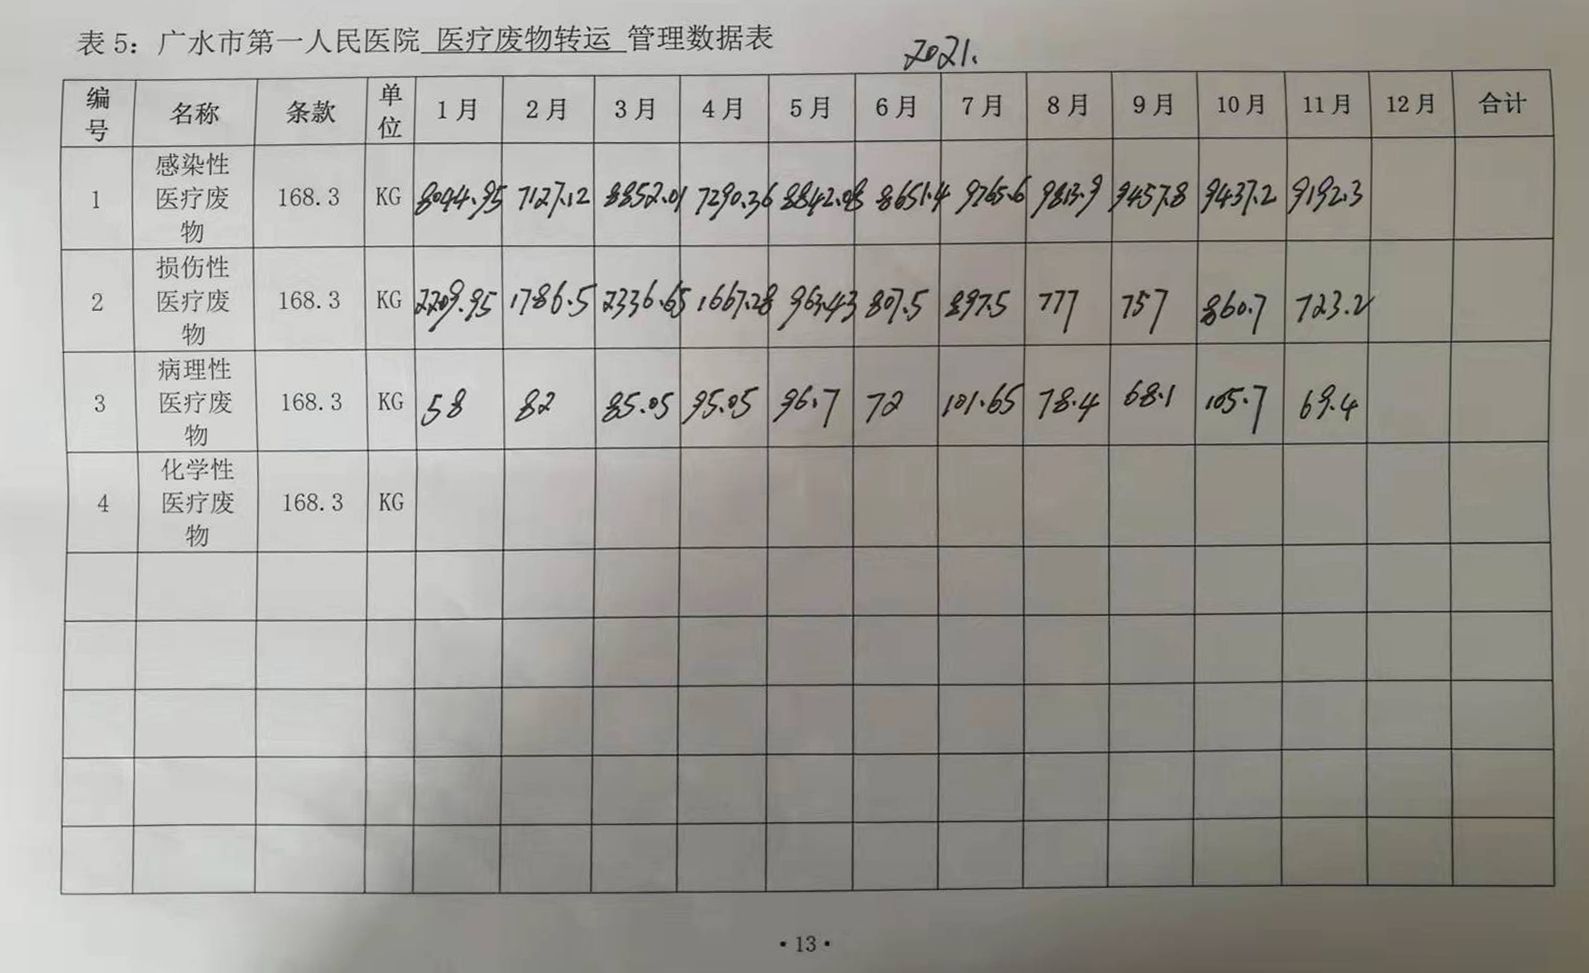 表 5：广水市第一人民医院 医疗废物转运 管理数据表
2021.
编号 名称 条款 单位 1月 2月 3月 4月 5月 6月 7月 8月 9月 10月 11月 12月 合计
1 感染性医疗废物 168.3 KG 8044.95 7127.12 8852.01 7290.36 8842.08 8651.4 9765.6 9813.9 9457.8 9437.2 9192.3
2 损伤性医疗废物 168.3 KG 2209.95 1786.5 2336.65 1667.28 963.43 807.5 897.5 777 757 860.7 723.2
3 病理性医疗废物 168.3 KG 58 82 85.05 95.05 96.7 72 101.65 78.4 68.1 105.7 69.4
4 化学性医疗废物 168.3 KG
·13·